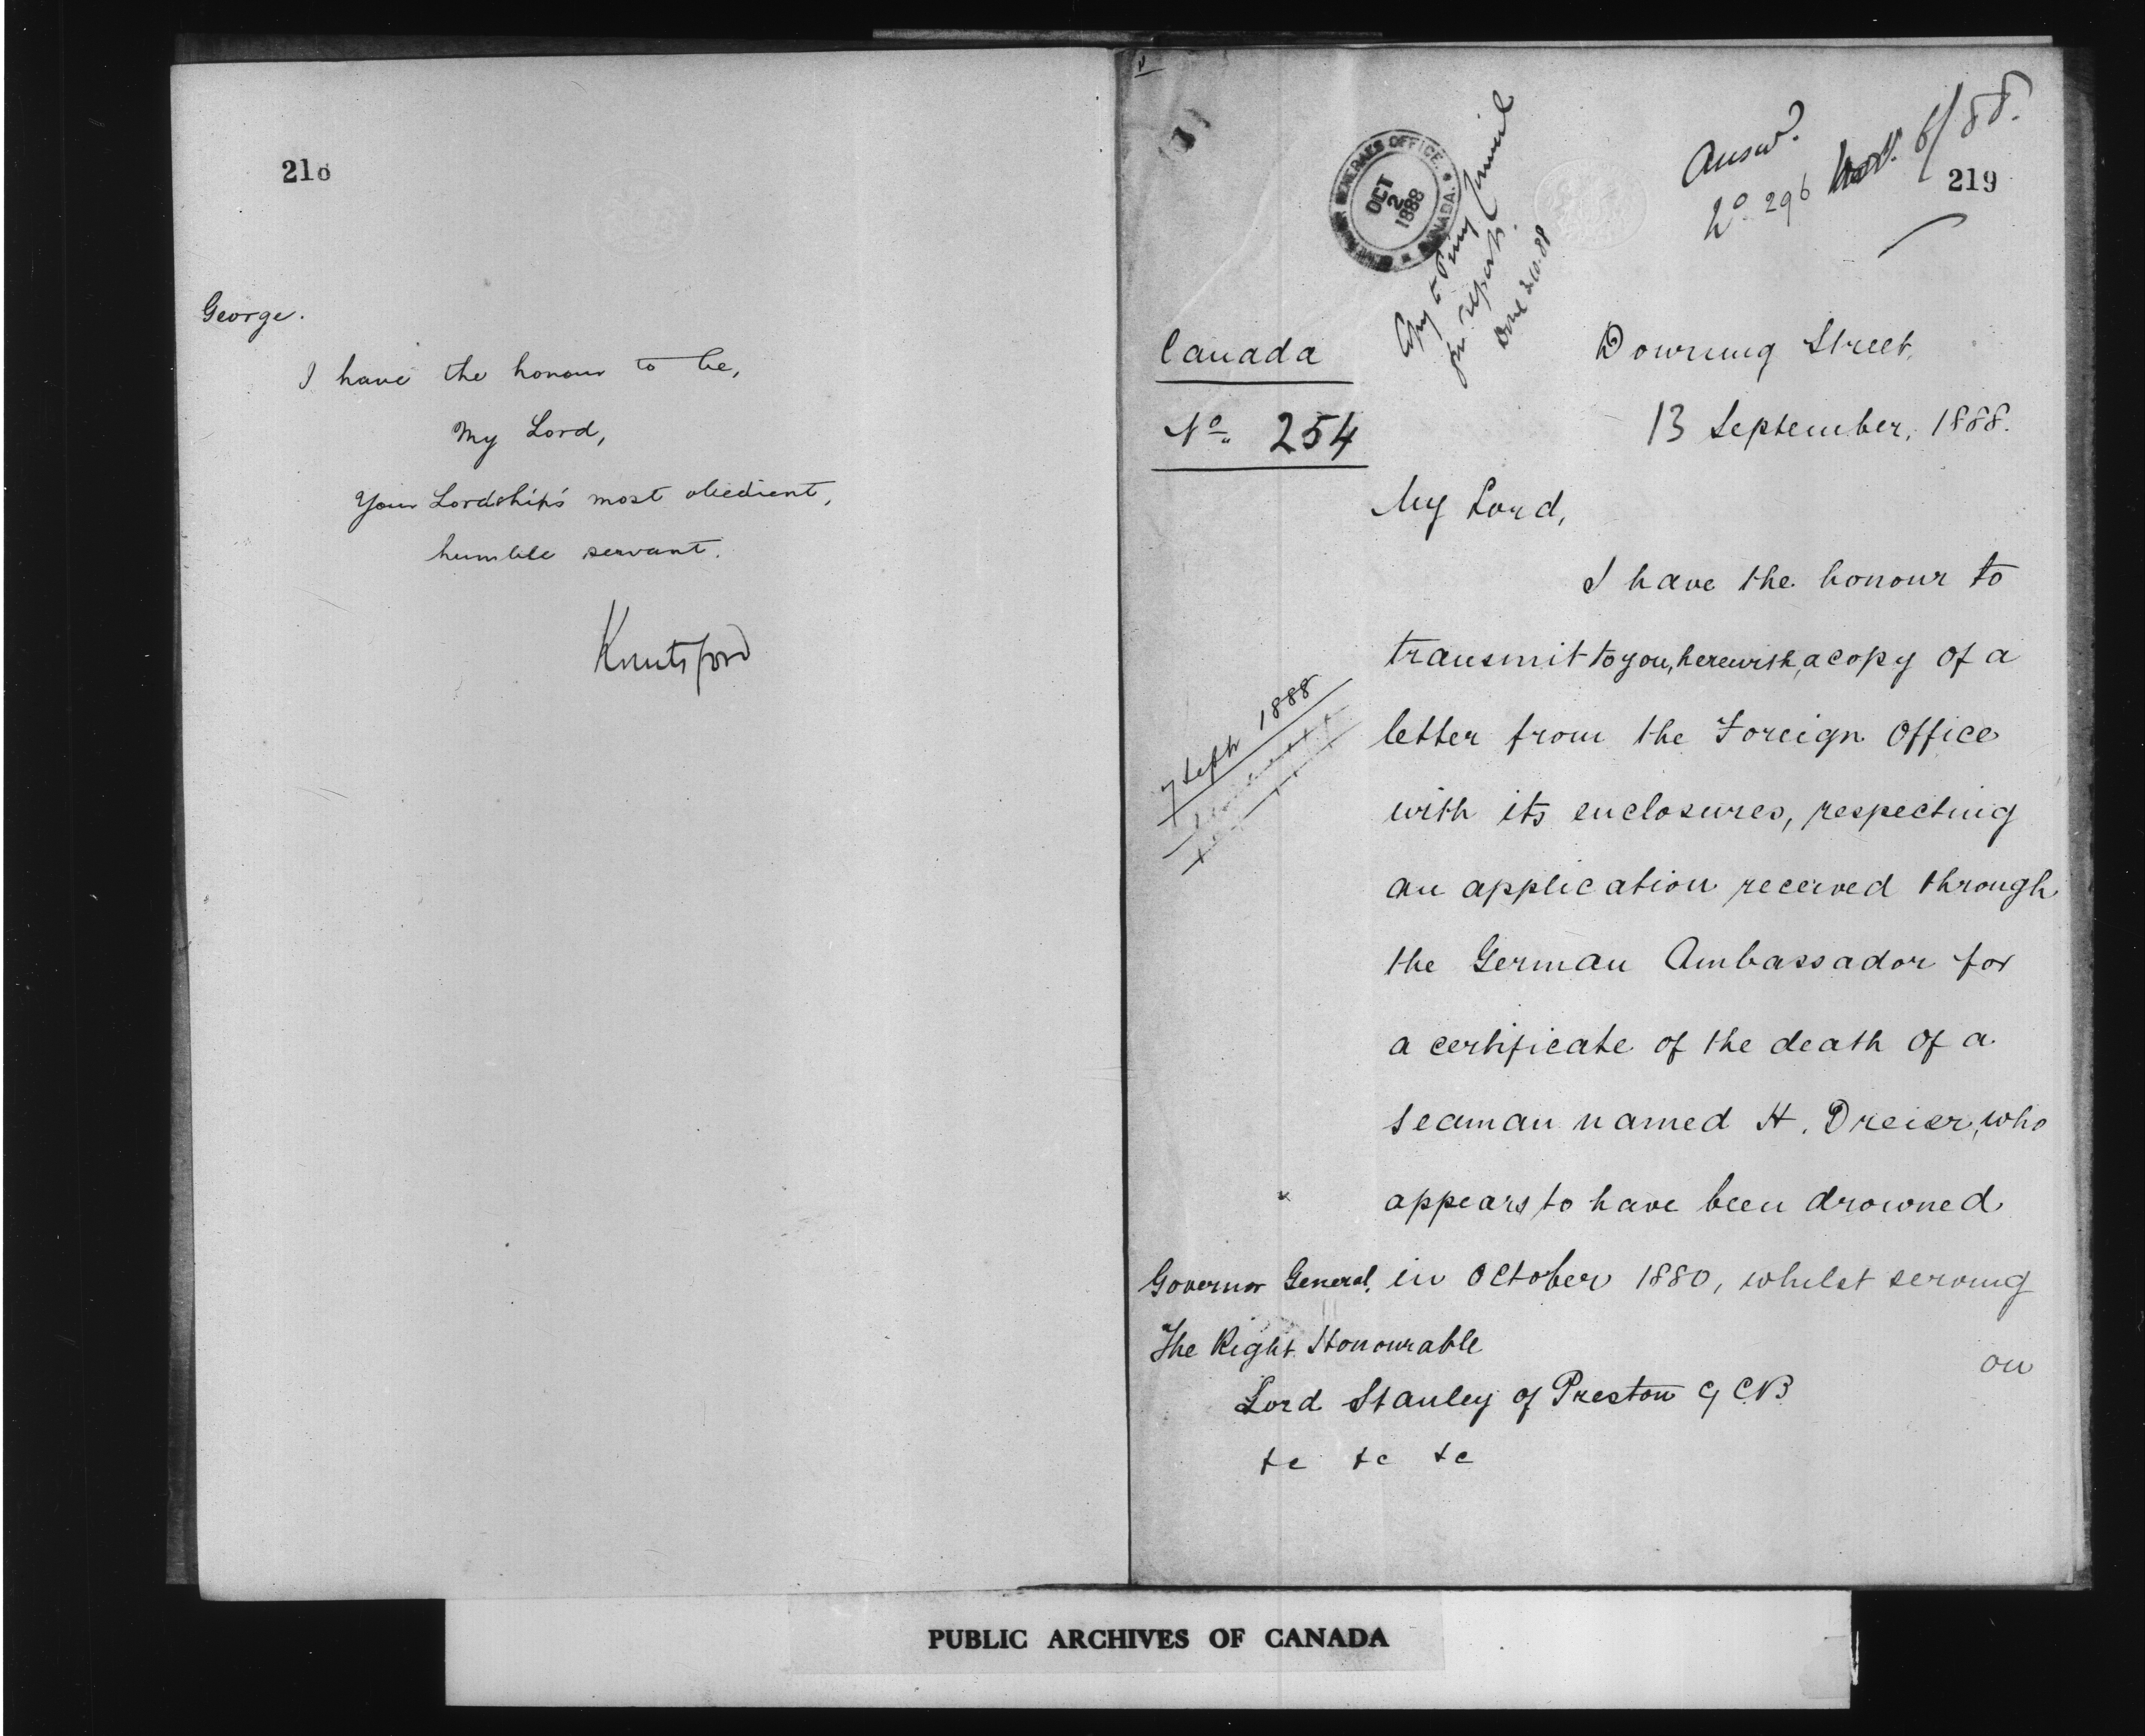 218
George.
I have the honour to be,
My Lord,
Your Lordship's most obedient,
humble servant.
Knutsford
219
Answd.
No. 296 Nov. 6/88.
GOVERNOR GENERAL'S OFFICE.
OCT
2
1888
CANADA.
Copy to Privy Council
for report.
Done 2.10.88
Canada
No. 254
Downing Street,
13 September, 1888.
My Lord,
I have the honour to
transmit to you, herewith, a copy of a
7 Septr 1888
letter from the Foreign Office
with its enclosures, respecting
an application received through
the German Ambassador for
a certificate of the death of a
seaman named H. Dreier, who
appears to have been drowned
in October 1880, whilst serving
on
Governor General.
The Right Honourable
Lord Stanley of Preston G.C.B.
&c &c &c
PUBLIC ARCHIVES OF CANADA